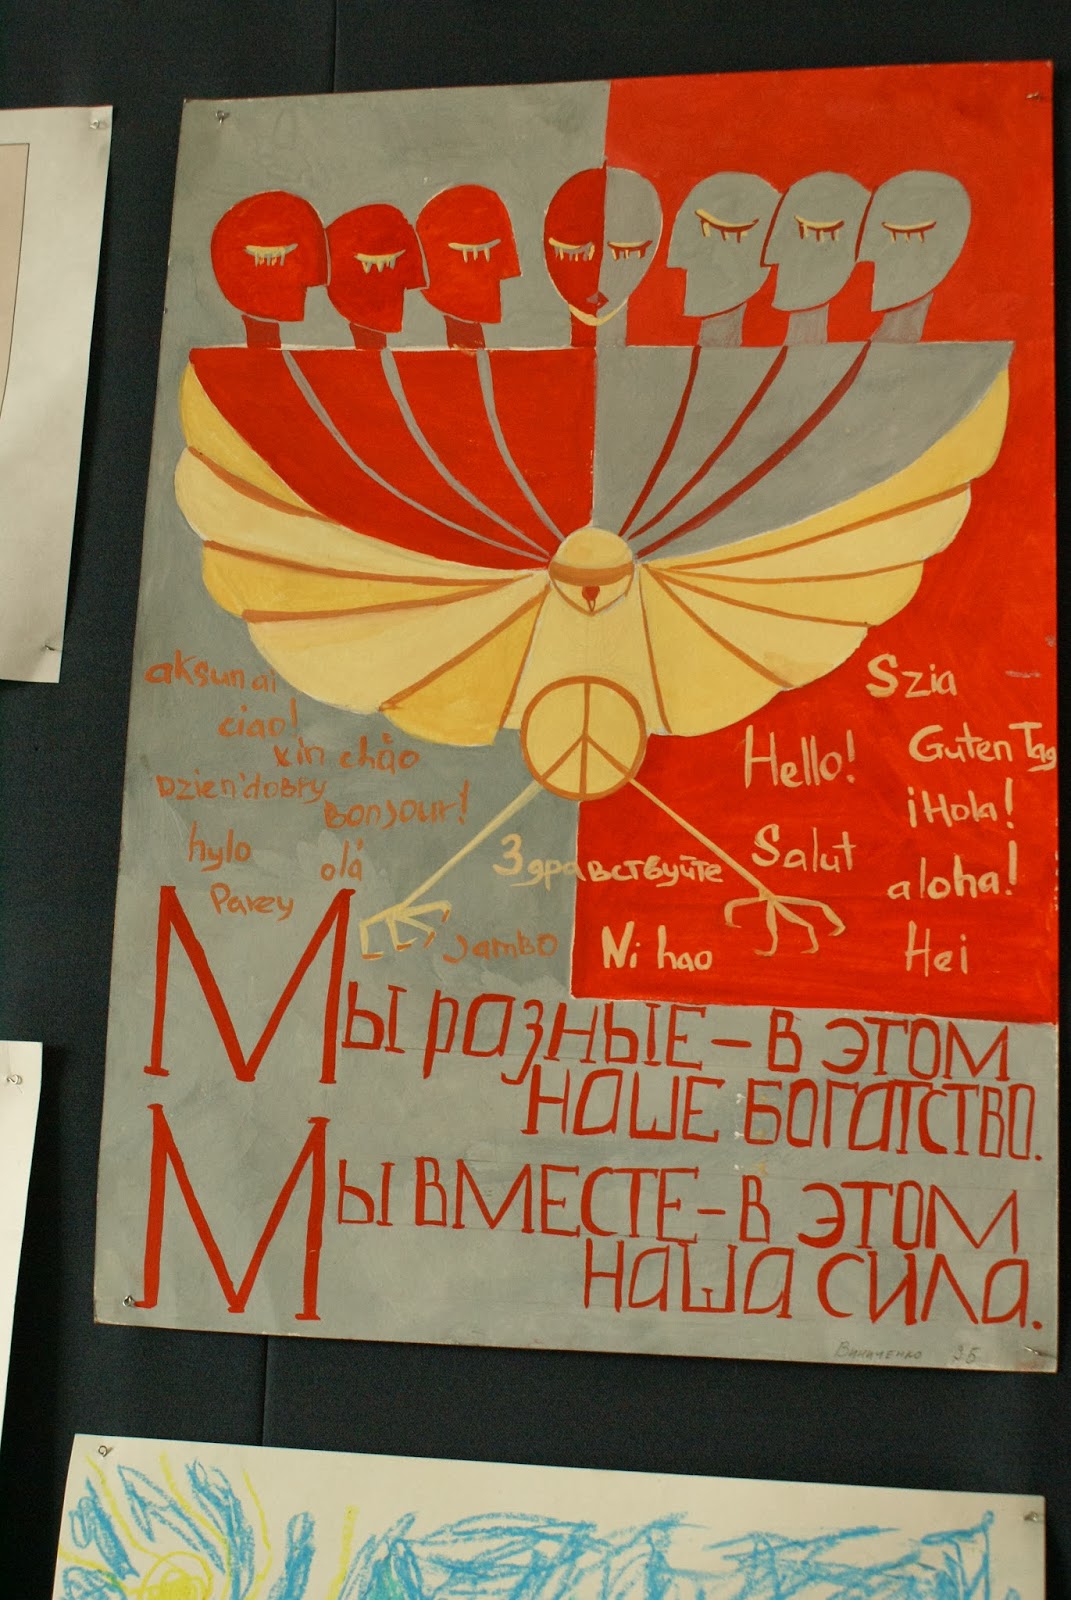 aksunai
ciao!
xin chào
Dzien'dobry
Bonjour!
hylo
olá
Parey
Jambo
Здравствуйте
Ni hao
Szia
Guten Tag
Hello!
¡Hola!
Salut
aloha!
Hei
Мы разные – в этом
наше богатство.
Мы вместе – в этом
наша сила.
Виниченко 9Б